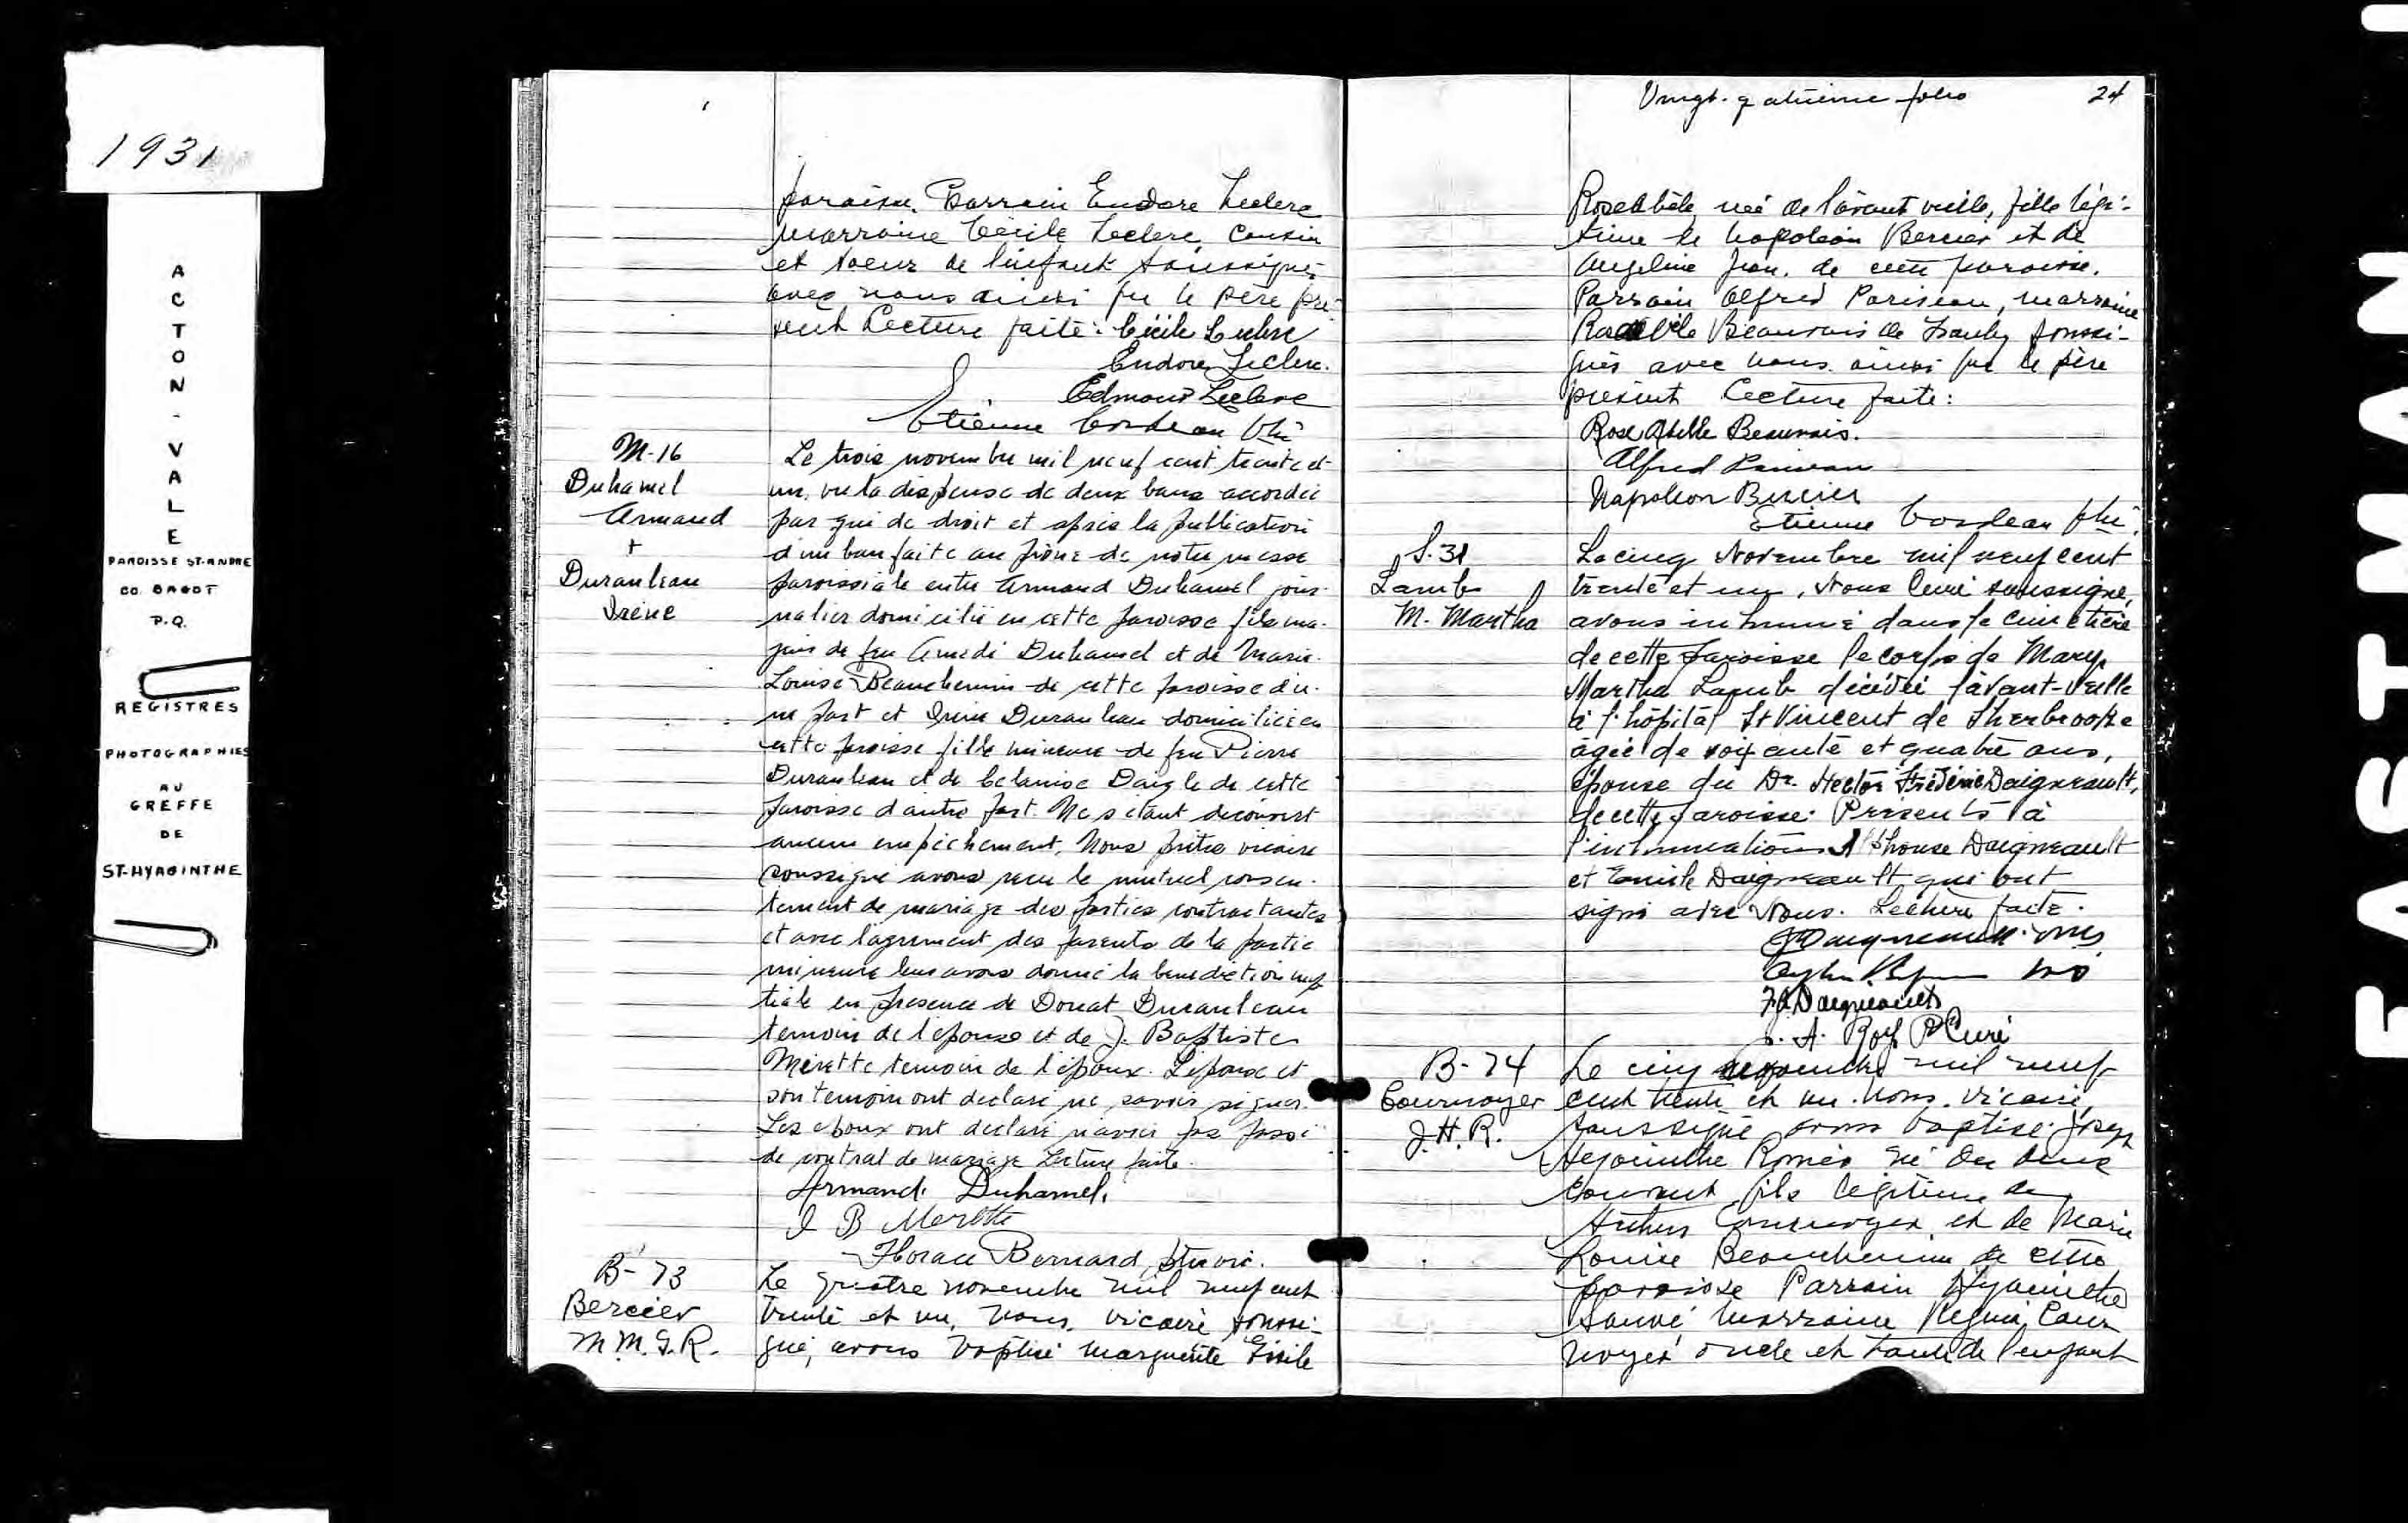 1931
ACTON-VALE
PAROISSE ST-ANDRE
CO. BAGOT
P.Q.
REGISTRES
PHOTOGRAPHIES
AU
GREFFE
DE
ST-HYACINTHE
paroisse. Parrain Eudore Leclerc
marraine Cécile Leclerc, cousin
et soeur de l'enfant soussignés
avec nous ainsi que le père pré-
sent Lecture faite: Cécile Leclerc
Eudore Leclerc.
Edmond Leclerc
Etienne Cordeau ptre
M-16
Duhamel
Armand
+
Duranleau
Irène
Le trois novembre mil neuf cent trente et
un, vu la dispense de deux bans accordée
par qui de droit et après la publication
d'un ban faite au prône de notre messe
paroissiale entre Armand Duhamel jour-
nalier domicilié en cette paroisse fils ma-
jeur de feu Amédé Duhamel et de Marie-
Louise Beauchemin de cette paroisse d'u-
ne part et Irène Duranleau domiciliée en
cette paroisse fille mineure de feu Pierre
Duranleau et de Celanise Daigle de cette
paroisse d'autre part. Ne s'étant découvert
aucun empêchement, Nous prêtre vicaire
soussigné avons reçu le mutuel consen-
tement de mariage des parties contractantes
et avec l'agrément des parents de la partie
mineure leur avons donné la bénédiction nup
tiale en présence de Donat Duranleau
temoin de l'épouse et de J. Baptiste
Mérette temoin de l'époux. L'épouse et
son temoin ont déclaré ne savoir signer.
Les époux ont déclaré n'avoir pas passé
de contrat de mariage Lecture faite.
Armand Duhamel.
J B Merette
Horace Bernard, ptre vic.
B-73
Bercier
M.M.G.R.
Le quatre novembre mil neuf cent
trente et un, nous, vicaire soussi-
gné, avons baptisé Marguerite Gisile
Vingt-quatrième folio 24
Rose Abèle, née de l'avant veille, fille légi-
time de Napoléon Bercier et de
Angeline Jean, de cette paroisse.
Parrain Alfred Pariseau, marraine
Rose Abèle Beauvais de soussi-
gnés avec nous ainsi que le père
présent Lecture faite:
Rose Abelle Beauvais.
Alfred Pariseau
Napoleon Bercier
Etienne Cordeau ptre.
S.31
Lamb
M. Martha
Le cinq Novembre mil neuf cent
trente et un, Nous Curé soussigné,
avons inhumé dans le cimetière
de cette paroisse le corps de Mary
Martha Lamb décédée l'avant-veille
à l'hôpital St Vincent de Sherbrooke
agée de soixante et quatre ans,
épouse du Dr. Hector Fréderic Daigneault,
de cette paroisse. Présents à
l'inhumation Alphonse Daigneault
et Emile Daigneault qui ont
signé avec Nous. Lecture faite.
Daigneault
F.A. Daigneault
J. A. Roy Ptre Curé
B-74
Cournoyer
J.H.R.
Le cinq novembre mil neuf
cent trente et un. Nous, vicaire,
soussigné avons baptisé Joseph
Hyacinthe Roméo né du deux
courant, fils legitime de
Arthur Cournoyer et de Marie
Louise Beauchemin de cette
paroisse Parrain Hyacinthe
Sauvé Marraine Régina Cour
noyer oncle et tante de l'enfant
EASTMAN